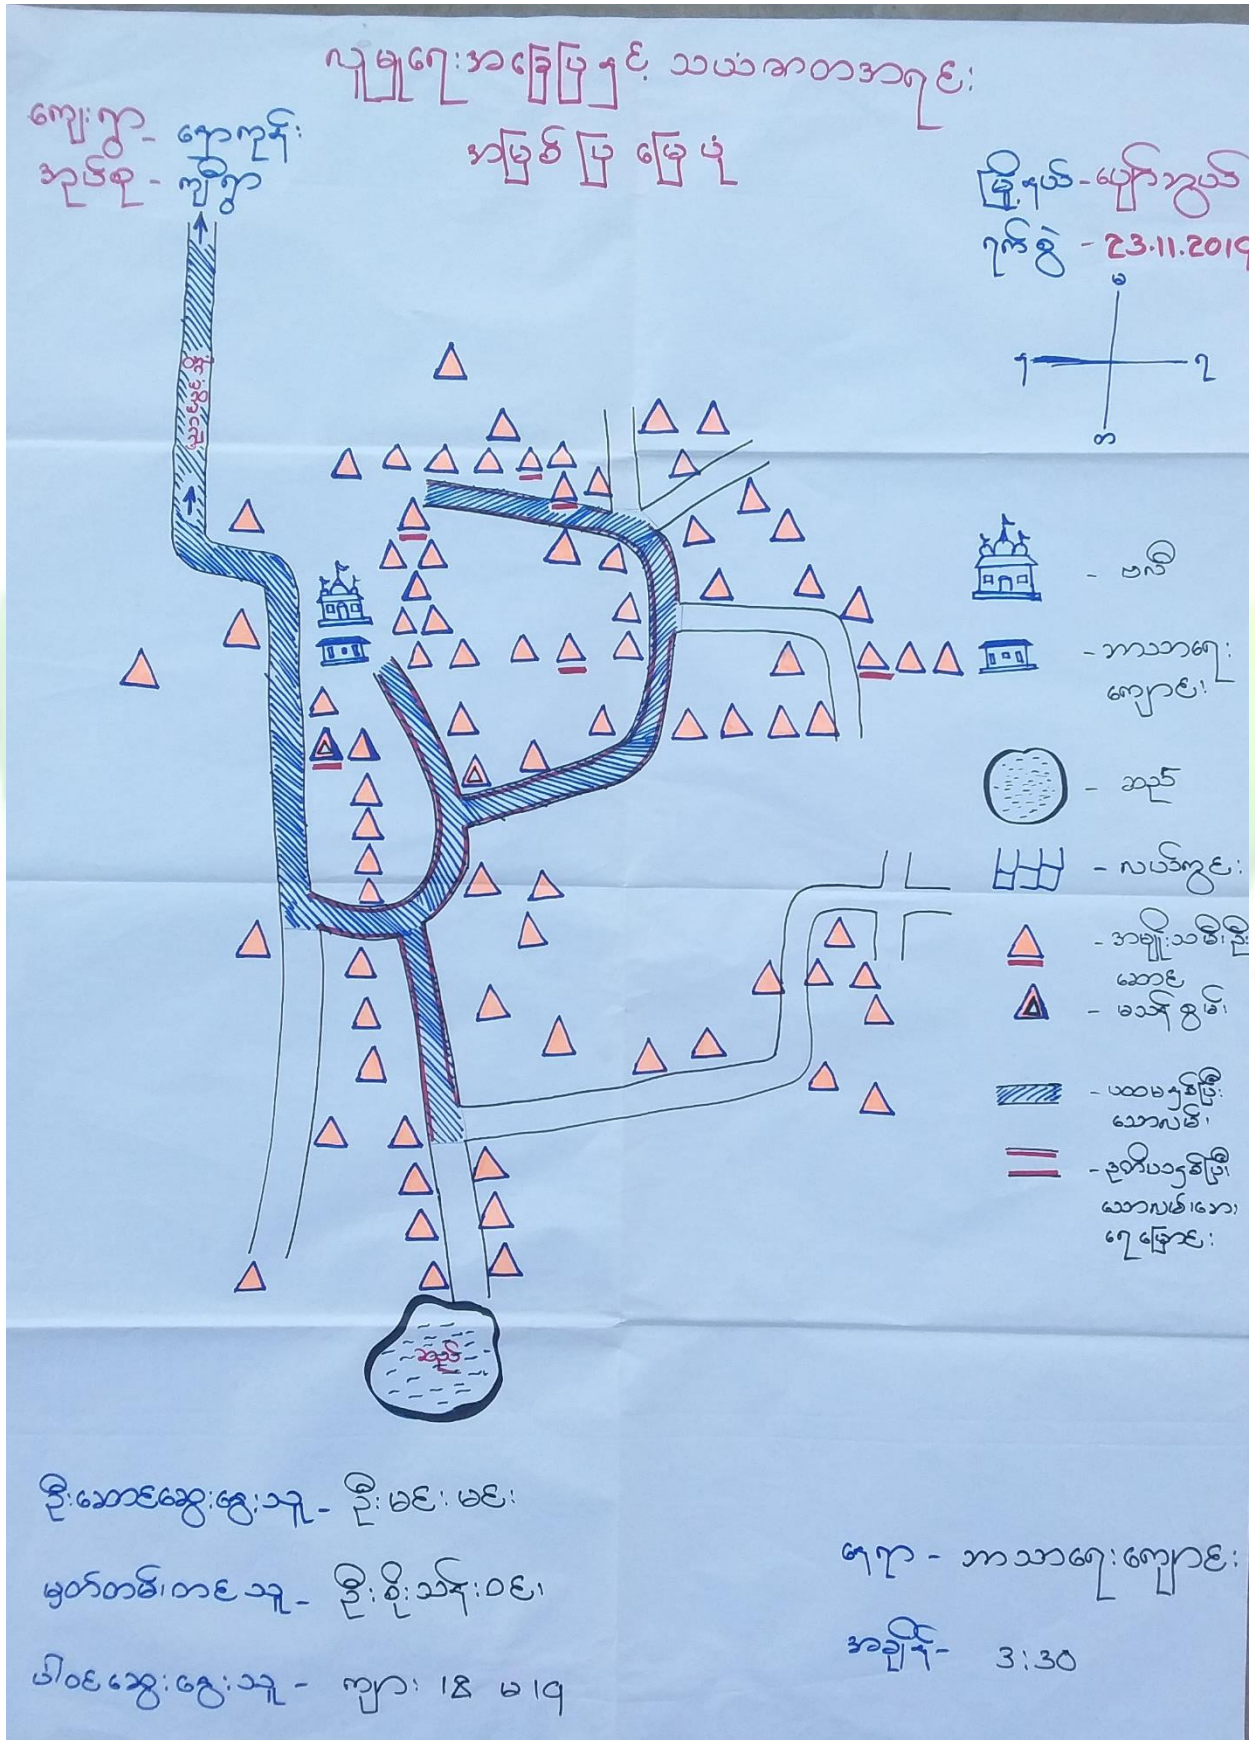 လူမှုရေးအခြေပြနှင့် သယံဇာတအရင်း
အမြစ်ပြ မြေပုံ
ကျေးရွာ - နောကုန်း
အုပ်စု - ကျီရွာ
မြို့နယ် - ပျော်ဘွယ်
ရက်စွဲ - 23.11.2019
မ
ရ
တ
- ဗလီ
- ဘာသာရေး
ကျောင်း
- ဆည်
- လယ်ကွင်း
- အမျိုးသမီးဦး
ဆောင်
- မသန်စွမ်း
- ပထမနှစ်ပြီး
သောလမ်း
- ဒုတိယနှစ်ပြီး
သောလမ်းဘေး
ရေမြောင်း
ဆည်
ဦးဆောင်ဆွေးနွေးသူ - ဦးမင်းမင်း
မှတ်တမ်းတင်သူ - ဦးစိုးသန်းဝင်း
ပါဝင်ဆွေးနွေးသူ - ကျား ၊ 8 မ ၊ 9
နေရာ - ဘာသာရေးကျောင်း
အချိန် - 3:30